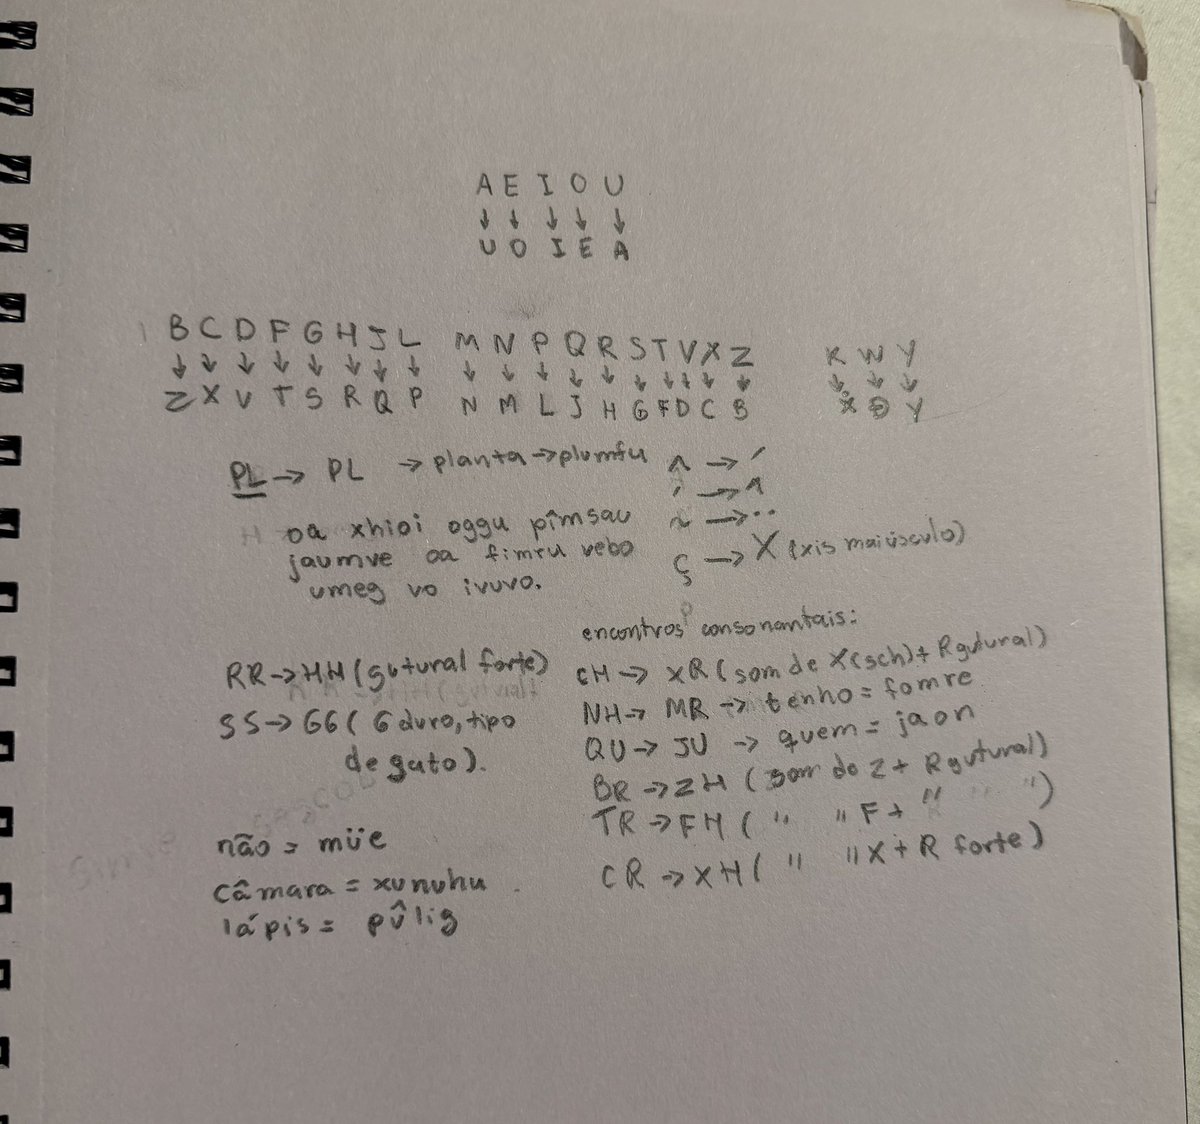 A E I O U
↓ ↓ ↓ ↓ ↓
U O I E A
B C D F G H J L M N P Q R S T V X Z K W Y
↓ ↓ ↓ ↓ ↓ ↓ ↓ ↓ ↓ ↓ ↓ ↓ ↓ ↓ ↓ ↓ ↓ ↓ ↓ ↓ ↓
Z X V T S R Q P N M L J H G F D C B Y
PL → PL → planta → plumfu
^ → ´
´ → ^
~ → ··
Ç → X (xis maiúsculo)
oa xhioi oggu pîmsau
jaumve oa fimru vebo
umeg vo ivuvo.
RR → HH (gutural forte)
SS → GG (G duro, tipo
de gato).
não = müe
câmara = xunuhu
lápis = pûlig
encontros consonantais:
CH → XR (som de X(sch) + R gutural)
NH → MR → tenho = fomre
QU → JU → quem = jaon
BR → ZH (som de Z + R gutural)
TR → FH ( " " F + " " )
CR → XH ( " " X + R forte)